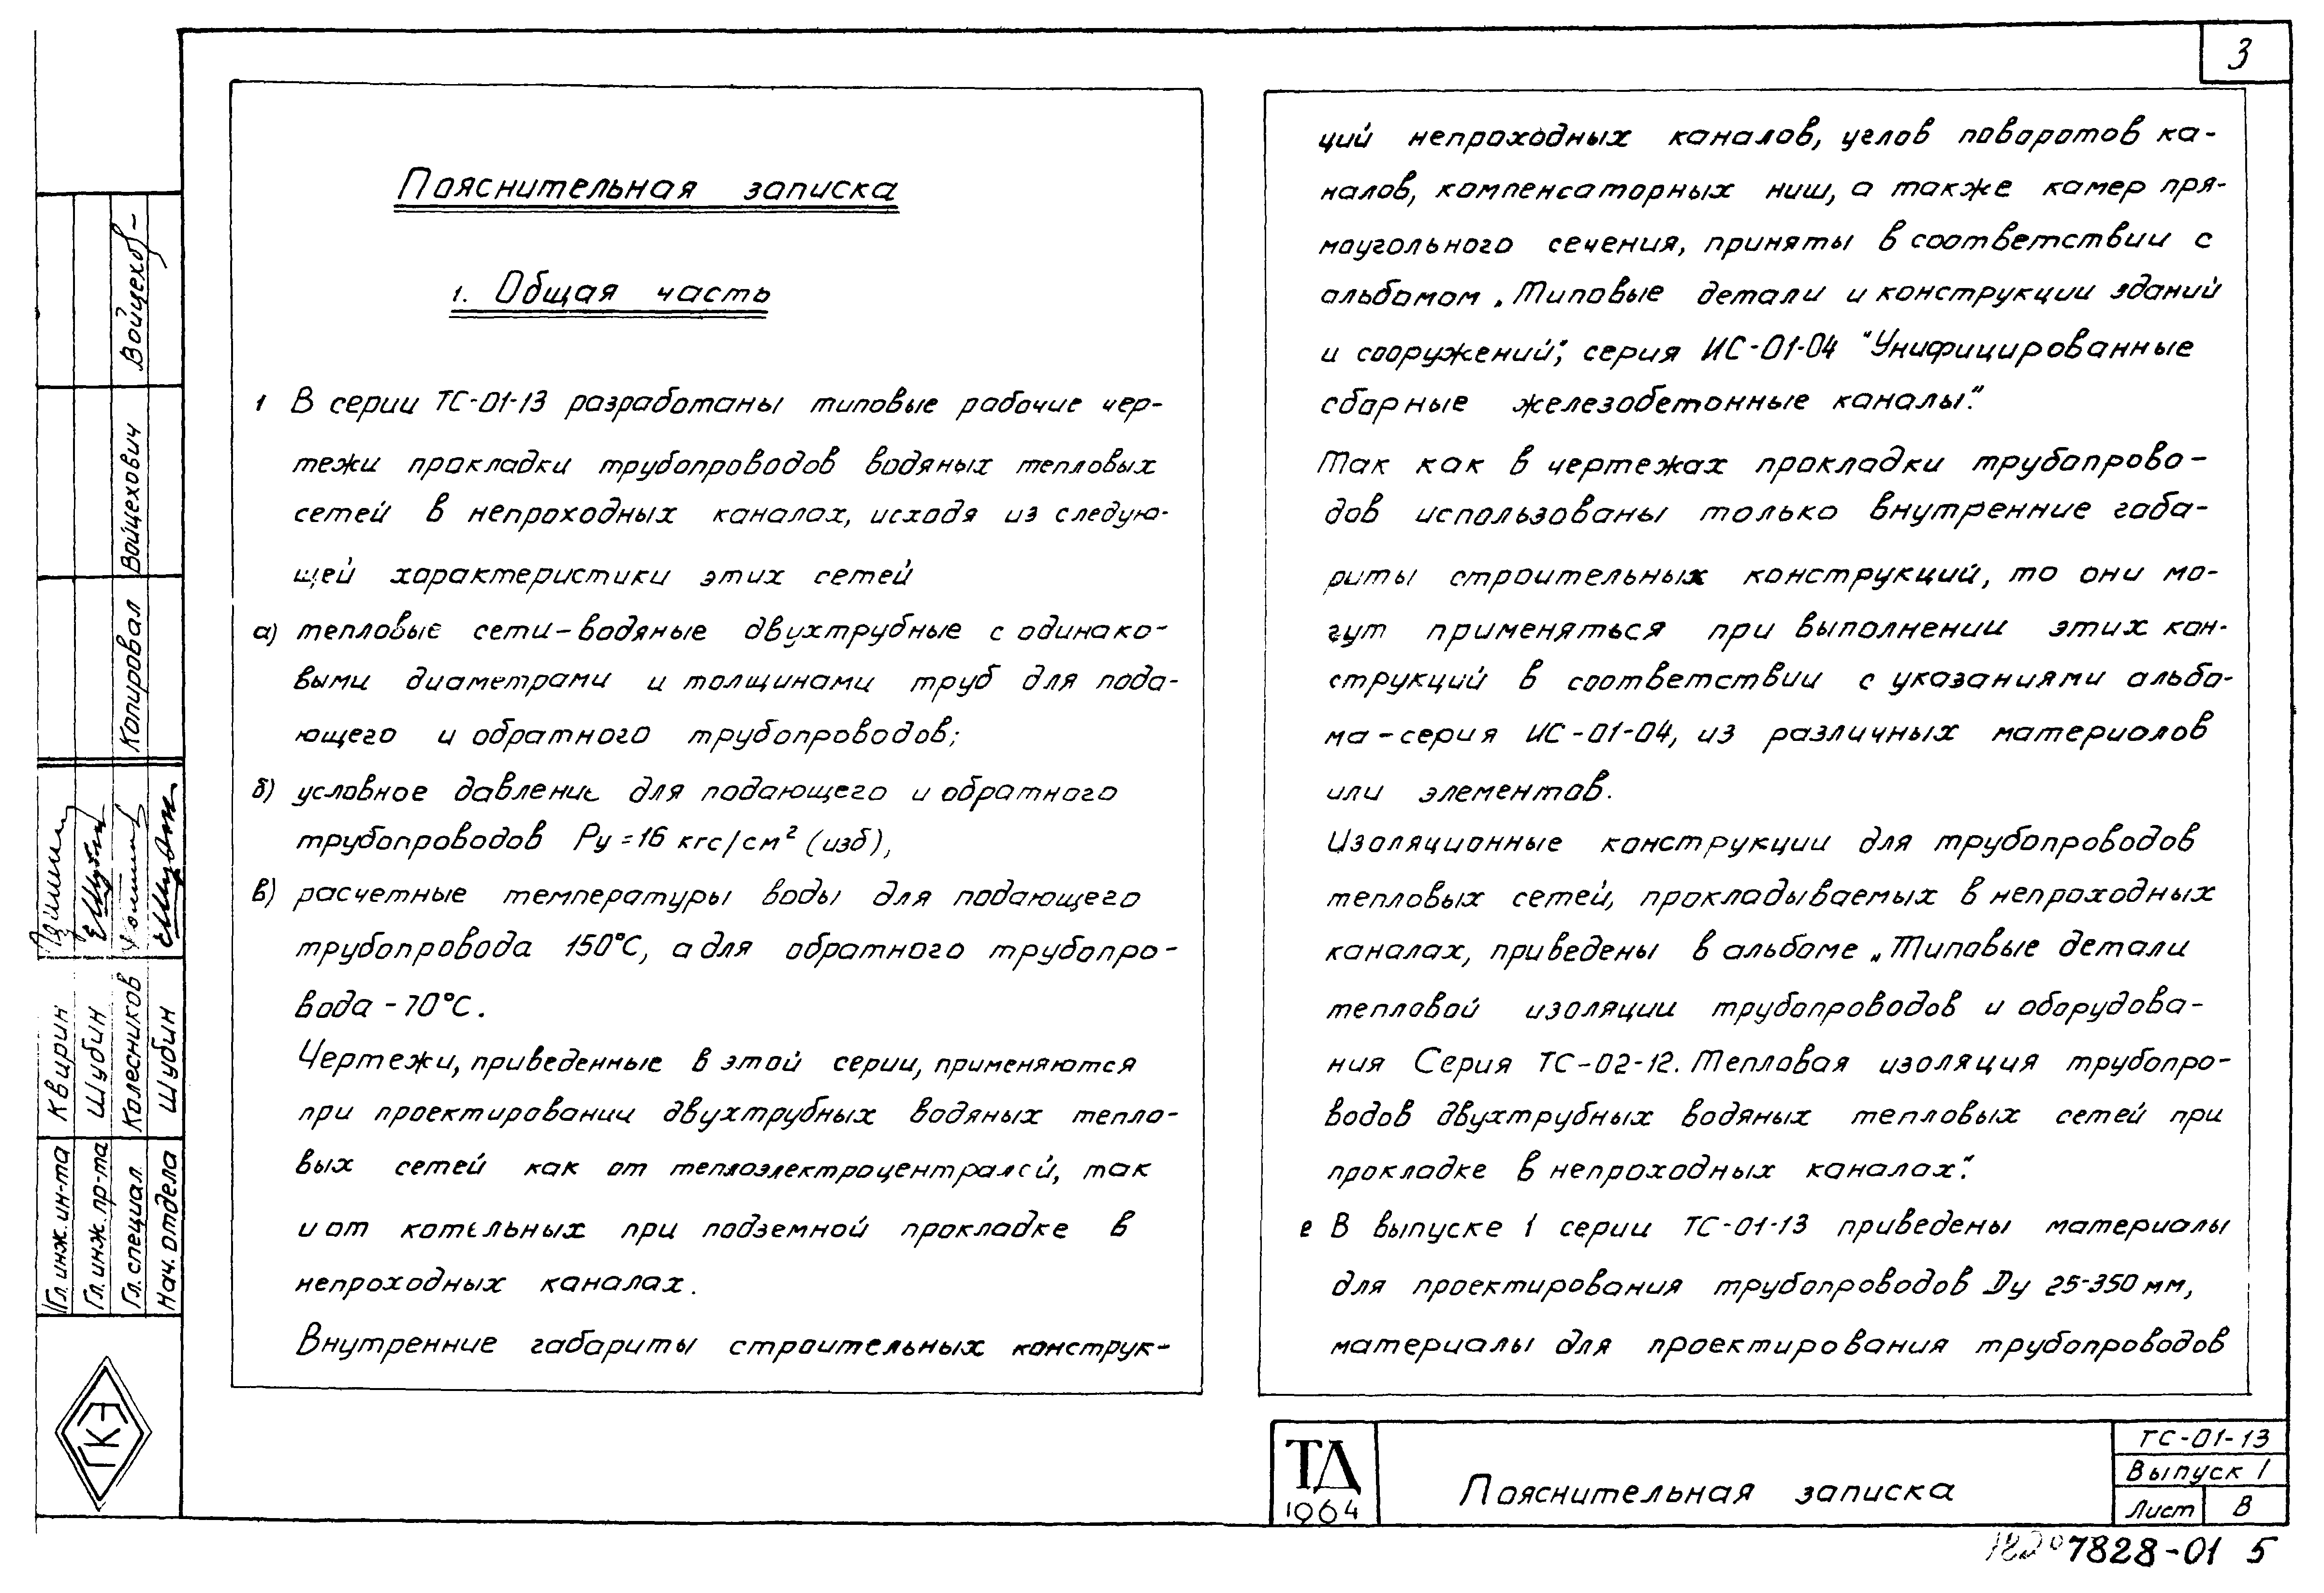 3
Пояснительная записка
1. Общая часть
1 В серии ТС-01-13 разработаны типовые рабочие чер-
тежи прокладки трубопроводов водяных тепловых
сетей в непроходных каналах, исходя из следую-
щей характеристики этих сетей
а) тепловые сети-водяные двухтрубные с одинако-
выми диаметрами и толщинами труб для пода-
ющего и обратного трубопроводов;
б) условное давление для подающего и обратного
трубопроводов Ру = 16 кгс/см² (изб),
в) расчетные температуры воды для подающего
трубопровода 150°С, а для обратного трубопро-
вода - 70°С.
Чертежи, приведенные в этой серии, применяются
при проектировании двухтрубных водяных тепло-
вых сетей как от теплоэлектроцентралей, так
и от котельных при подземной прокладке в
непроходных каналах.
Внутренние габариты строительных конструк-
ций непроходных каналов, углов поворотов ка-
налов, компенсаторных ниш, а также камер пря-
моугольного сечения, приняты в соответствии с
альбомом „Типовые детали и конструкции зданий
и сооружений", серия ИС-01-04 "Унифицированные
сборные железобетонные каналы".
Так как в чертежах прокладки трубопрово-
дов использованы только внутренние габа-
риты строительных конструкций, то они мо-
гут применяться при выполнении этих кон-
струкций в соответствии с указаниями альбо-
ма-серия ИС-01-04, из различных материалов
или элементов.
Изоляционные конструкции для трубопроводов
тепловых сетей, прокладываемых в непроходных
каналах, приведены в альбоме „Типовые детали
тепловой изоляции трубопроводов и оборудова-
ния Серия ТС-02-12. Тепловая изоляция трубопро-
водов двухтрубных водяных тепловых сетей при
прокладке в непроходных каналах".
2 В выпуске 1 серии ТС-01-13 приведены материалы
для проектирования трубопроводов Dу 25-350 мм,
материалы для проектирования трубопроводов
Гл. инж. ин-та Квирин
Гл. инж. пр-та Шубин
Гл. специал. Колесников
Нач. отдела Шубин
Копировал Войцехович Войцехов-
ГКЭ
ТД
1964
Пояснительная записка
ТС-01-13
Выпуск 1
Лист В
7828-01 5